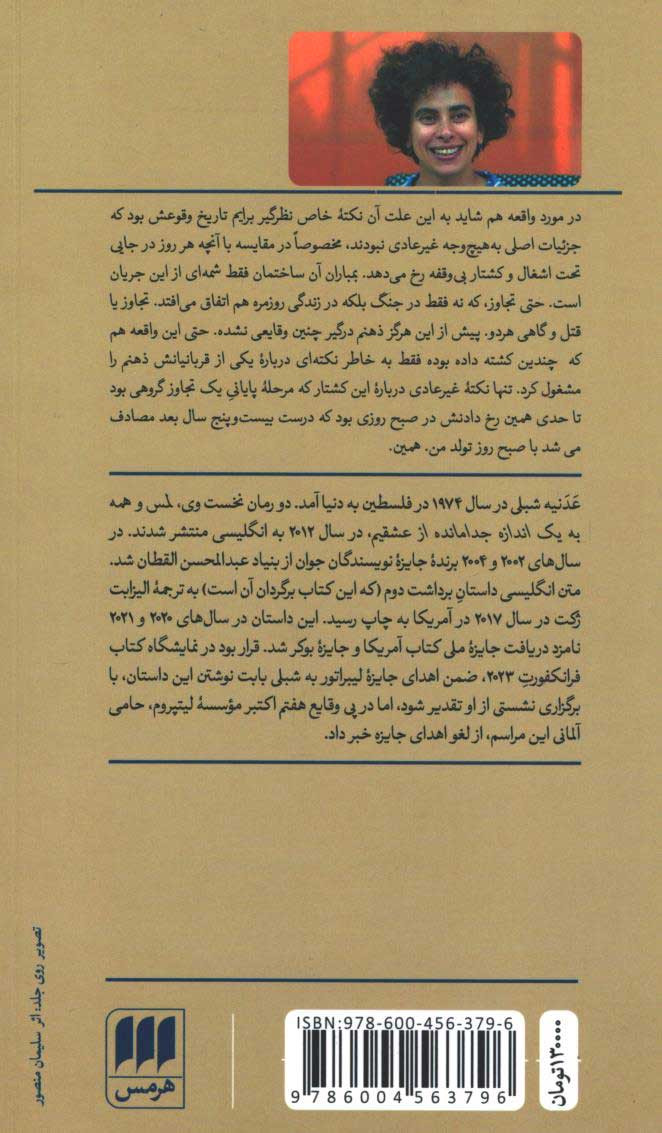 در مورد واقعه هم شاید به این علت آن نکتهٔ خاص نظرگیر برایم تاریخ وقوعش بود که
جزئیات اصلی به‌هیچ‌وجه غیرعادی نبودند، مخصوصاً در مقایسه با آنچه هر روز در جایی
تحت اشغال و کشتار بی‌وقفه رخ می‌دهد. بمباران آن ساختمان فقط شمه‌ای از این جریان
است. حتی تجاوز، که نه فقط در جنگ بلکه در زندگی روزمره هم اتفاق می‌افتد. تجاوز یا
قتل و گاهی هردو. پیش از این هرگز ذهنم درگیر چنین وقایعی نشده. حتی این واقعه هم
که چندین کشته داده بوده فقط به خاطر نکته‌ای دربارهٔ یکی از قربانیانش ذهنم را
مشغول کرد. تنها نکتهٔ غیرعادی دربارهٔ این کشتار که مرحلهٔ پایانیِ یک تجاوز گروهی بود
تا حدی همین رخ دادنش در صبح روزی بود که درست بیست‌وپنج سال بعد مصادف
می شد با صبح روز تولد من. همین.
عَدَنیه شبلی در سال ۱۹۷۴ در فلسطین به دنیا آمد. دو رمان نخست وی، لمس و همه
به یک اندازه جدامانده از عشقیم، در سال ۲۰۱۲ به انگلیسی منتشر شدند. در
سال‌های ۲۰۰۲ و ۲۰۰۴ برندهٔ جایزهٔ نویسندگان جوان از بنیاد عبدالمحسن القطان شد.
متن انگلیسی داستانِ برداشت دوم (که این کتاب برگردان آن است) به ترجمهٔ الیزابت
ژکت در سال ۲۰۱۷ در آمریکا به چاپ رسید. این داستان در سال‌های ۲۰۲۰ و ۲۰۲۱
نامزد دریافت جایزهٔ ملی کتاب آمریکا و جایزهٔ بوکر شد. قرار بود در نمایشگاه کتاب
فرانکفورتِ ۲۰۲۳، ضمن اهدای جایزهٔ لیبراتور به شبلی بابت نوشتن این داستان، با
برگزاری نشستی از او تقدیر شود، اما در پی وقایع هفتم اکتبر مؤسسهٔ لیتپروم، حامی
آلمانی این مراسم، از لغو اهدای جایزه خبر داد.
تصویر روی جلد: اثر سلیمان منصور
هرمس
ISBN:978-600-456-379-6
9 786004 563796
۱۳۰۰۰۰ تومان